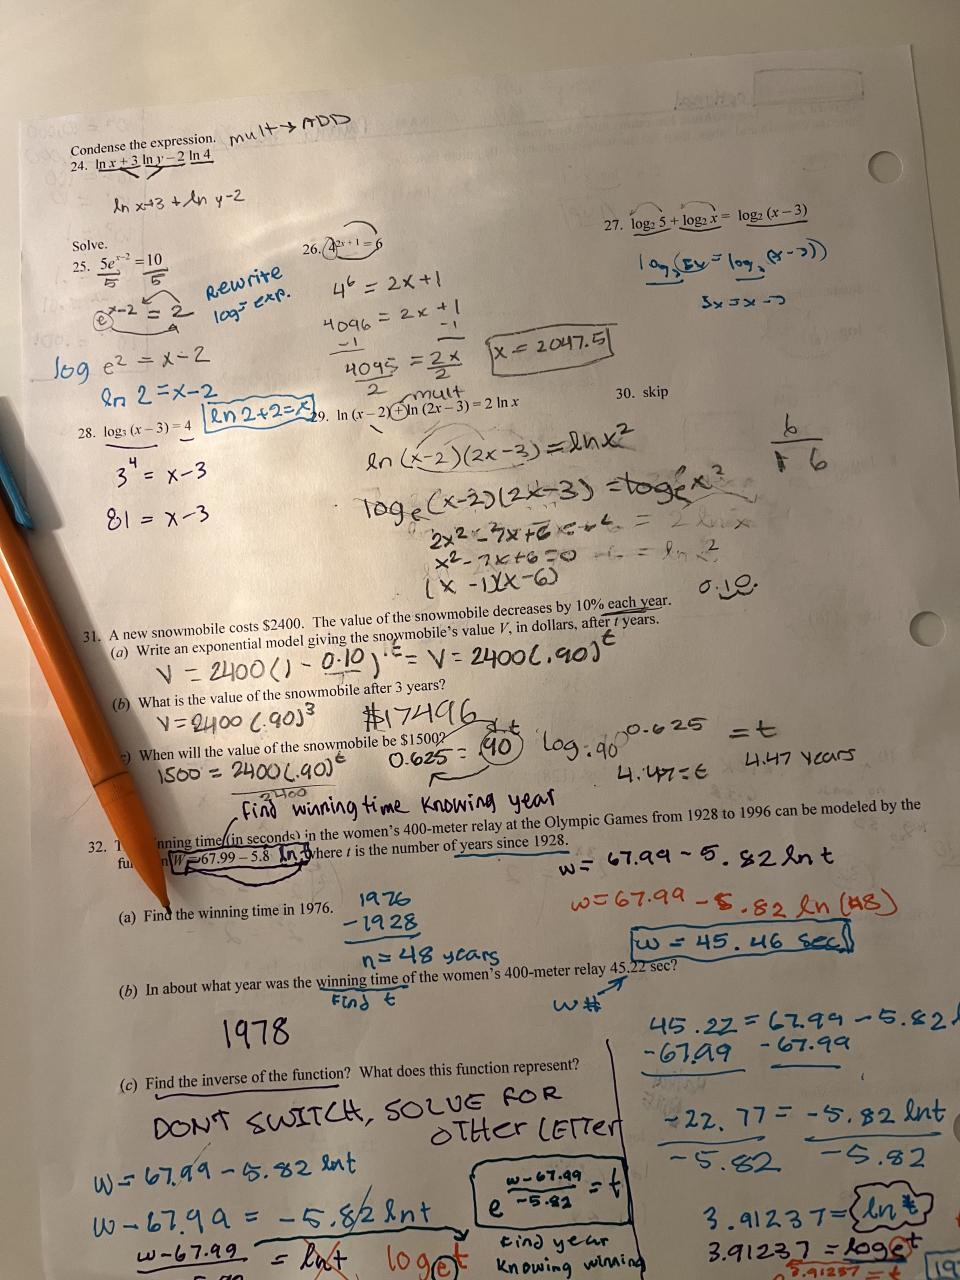 Condense the expression. mult → ADD
24. ln x + 3 ln y – 2 ln 4
ln x+3 + ln y-2
Solve.
25. 5e^x–2 = 10
5 5
e^x-2 = 2
Rewrite
log = exp.
log e² = x-2
ln 2 = x-2
ln 2+2=x
26. 4^2x + 1 = 6
4⁶ = 2x+1
4096 = 2x +1
-1 -1
4095 = 2x
2 2
x = 2047.5
27. log₂ 5 + log₂ x = log₂ (x – 3)
5x = x - 3
28. log₃ (x – 3) = 4
3⁴ = x-3
81 = x-3
mult
29. ln (x – 2) + ln (2x – 3) = 2 ln x
ln (x-2)(2x-3) = ln x²
log e (x-2)(2x-3) = log e x²
x² - 7x+6=0
(x -1)(x-6)
30. skip
6
1 6
0.10.
31. A new snowmobile costs $2400. The value of the snowmobile decreases by 10% each year.
(a) Write an exponential model giving the snowmobile's value V, in dollars, after t years.
V = 2400(1 - 0.10)^t = V = 2400(.90)^t
(b) What is the value of the snowmobile after 3 years?
V=2400(.90)³ $17496
When will the value of the snowmobile be $1500?
1500 = 2400(.90)^t
2400
0.625 = .90^t
log.90 0.625 = t
4.47=t 4.47 years
Find winning time knowing year
32. T nning time (in seconds) in the women's 400-meter relay at the Olympic Games from 1928 to 1996 can be modeled by the
fun n W = 67.99 – 5.8 ln t where t is the number of years since 1928.
w = 67.99 - 5.82 ln t
(a) Find the winning time in 1976.
1976
-1928
n = 48 years
w = 67.99 - 5.82 ln (48)
w = 45.46 sec
(b) In about what year was the winning time of the women's 400-meter relay 45.22 sec?
Find t
w #
1978
45.22 = 67.99 - 5.82
-67.99 -67.99
-22.77 = -5.82 lnt
-5.82 -5.82
3.91237 = ln t
3.91237 = loge t
(c) Find the inverse of the function? What does this function represent?
DON'T SWITCH, SOLVE FOR
OTHER LETTER
w = 67.99 - 5.82 lnt
w - 67.99 = -5.82 lnt
w-67.99 = lnt loge t
e^w-67.99/-5.82 = t
Find year
knowing winning